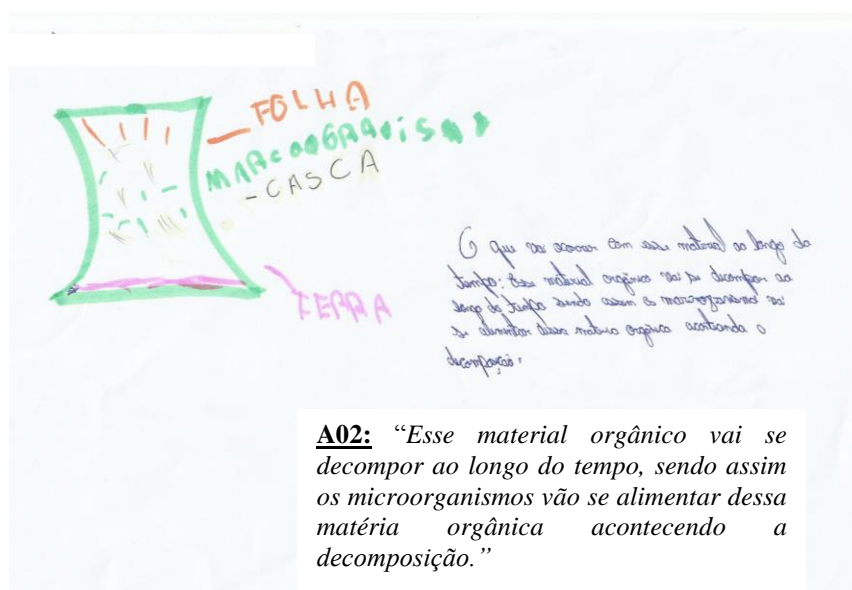 FOLHA
MARCOOGRAVISNO
-CASCA
TERRA
O que vai acorrer com esse material ao longo do
tempo: Esse material orgânico vai se decompor ao
longo do tempo sendo assim o marcrogranismo vai
se alimentar dessa matéria orgânica acontecendo a
decomposição.
A02: “Esse material orgânico vai se
decompor ao longo do tempo, sendo assim
os microorganismos vão se alimentar dessa
matéria orgânica acontecendo a
decomposição.”